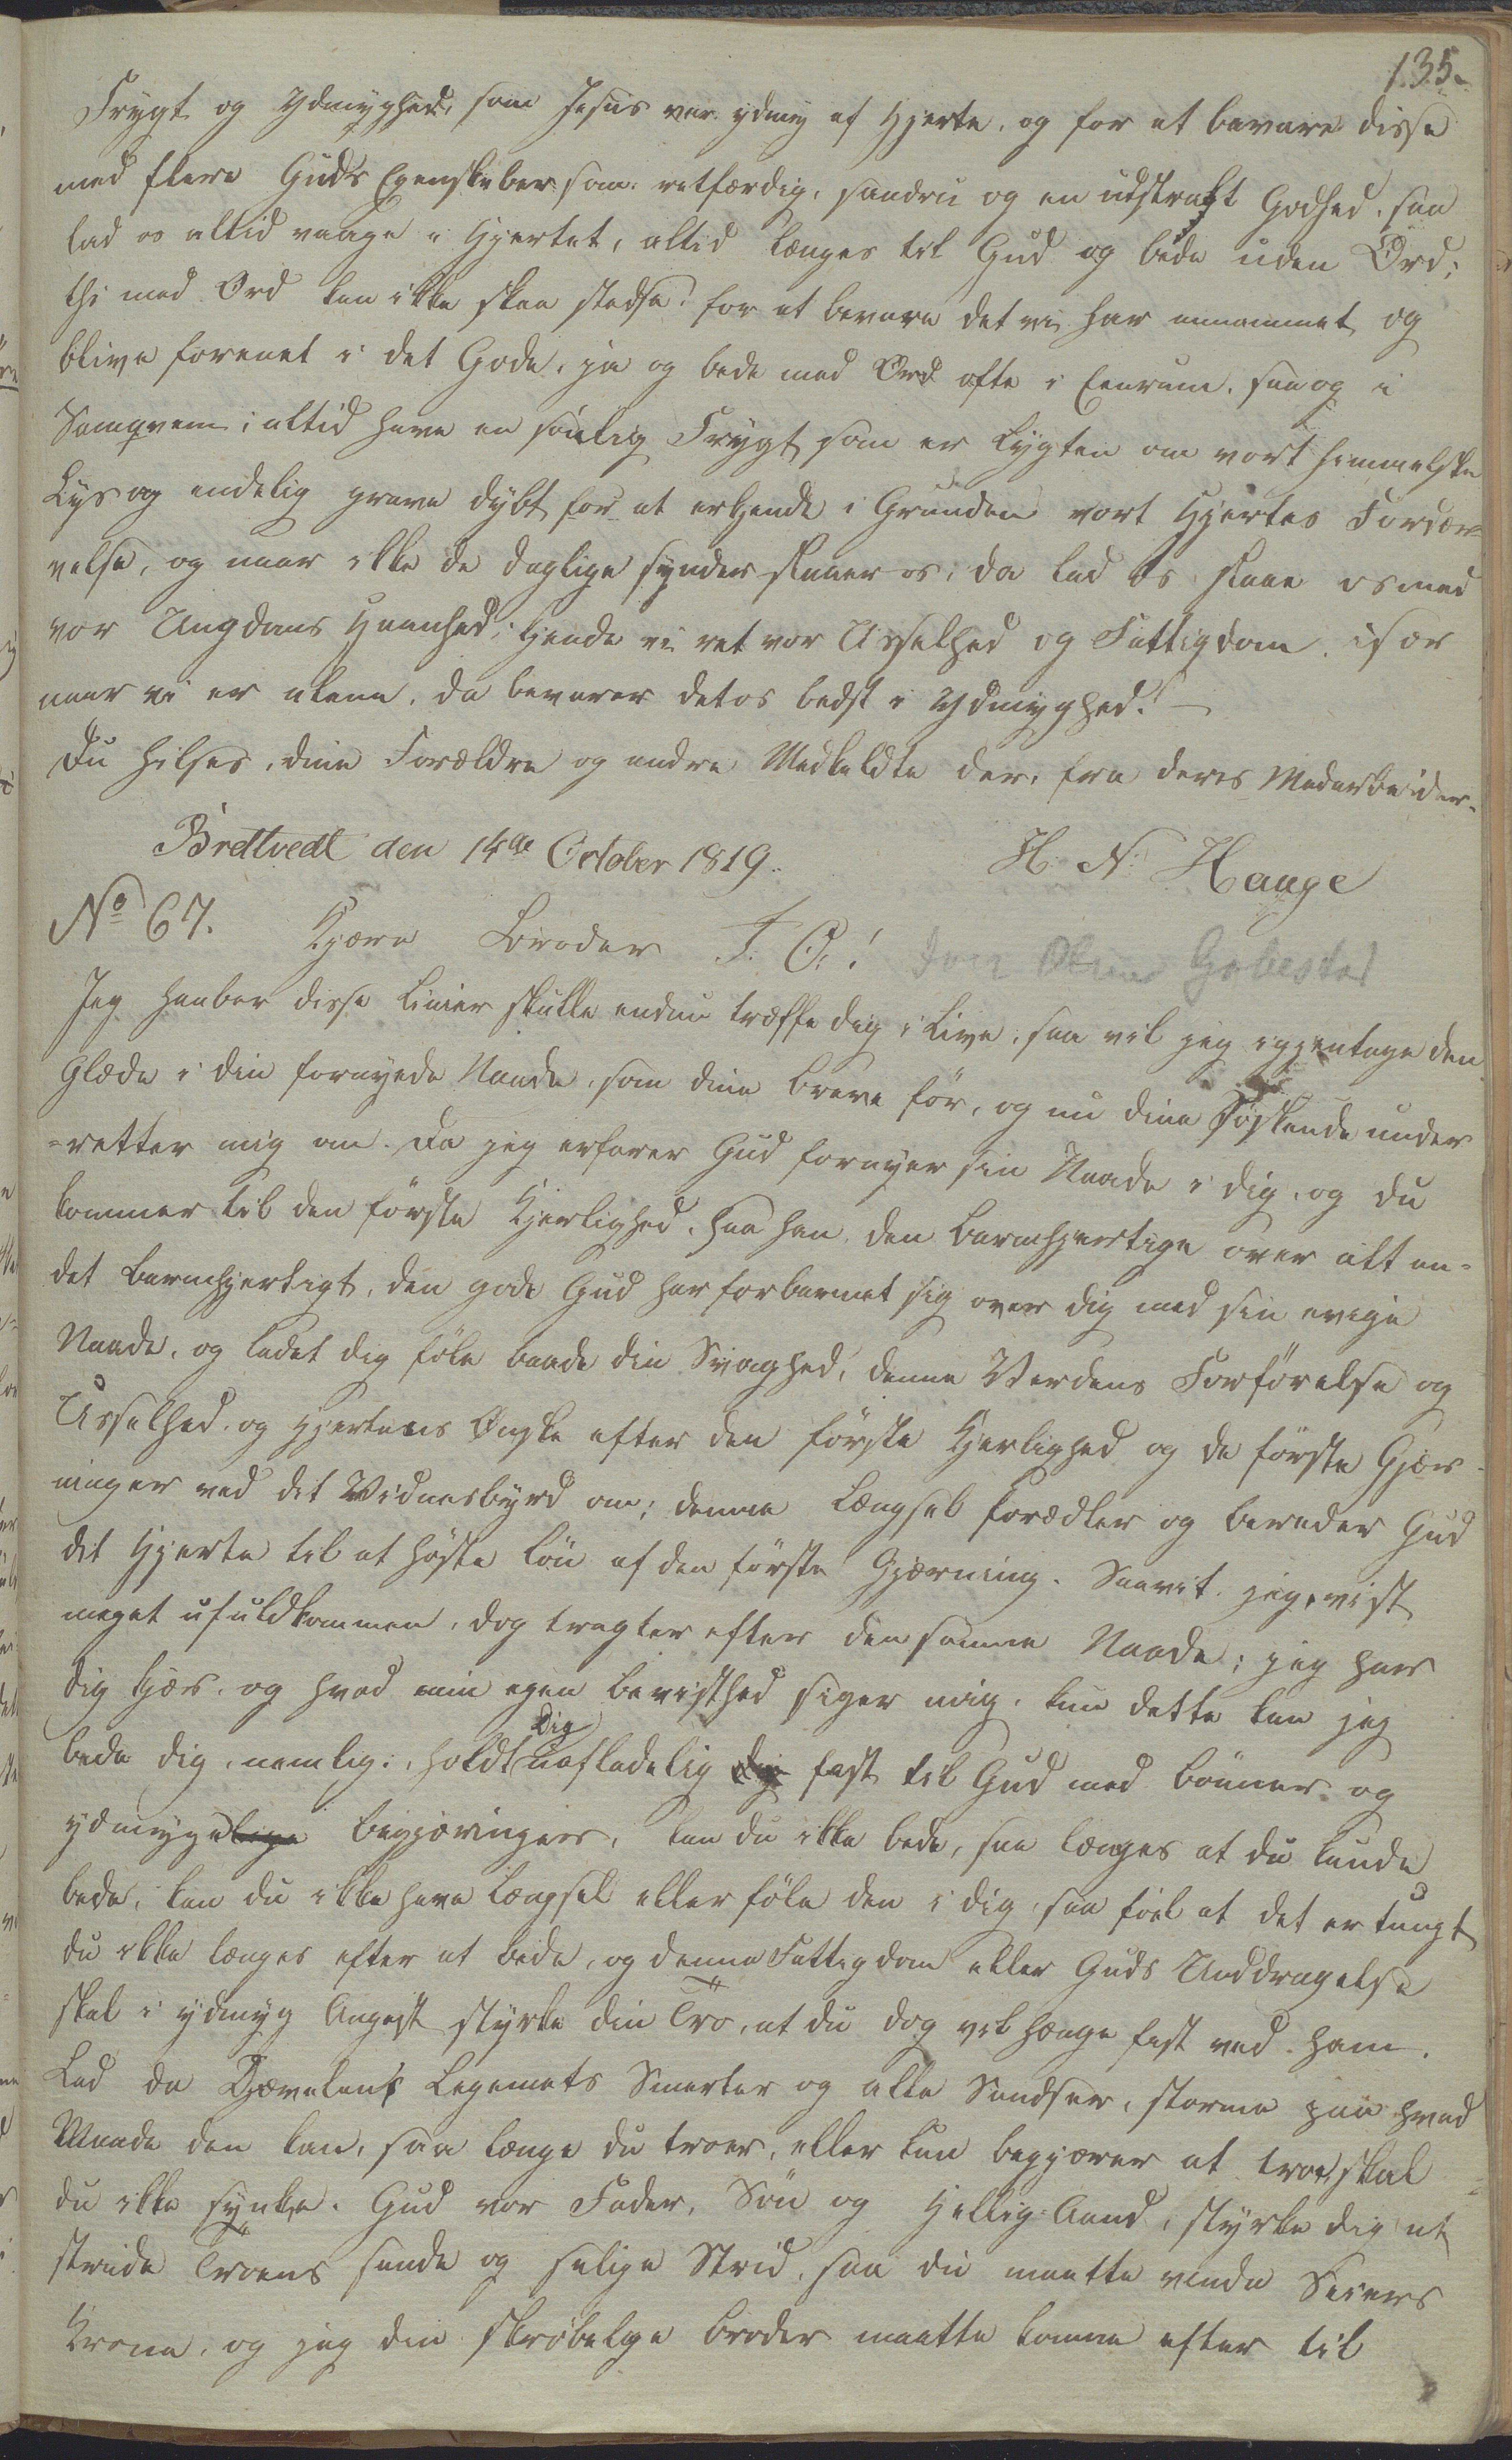 135.
Frygt og Ydmyghed, som Jesus var ydmig af Hjerte, og for at bevare disse
med flere Guds Egenskeber som: retfærdig, sandru og en udstrakt Godhed, saa
lad os altid vaage i Hjertet, altid længes til Gud og bede uden Ord;
thi med Ord kan ikke skee stedse: for at bevare det vi har annammet og
blive forenet i det Gode, ja og bede med Ord ofte i Eenrum, saa og i
Samqvem; altid have en sönlig Frygt som er Lygten om vort himmelske
Lys og endelig grave dybt for at erkjende i Grunden vort Hjertes Fordær-
velse, og naar ikke de daglige synder slaaer os, da lad os slaae os med
vor Ungdoms Haanhed; kjende vi ret vor Usselhed og Fattigdom, især
naar vi er alene, da bevarer det os bedst i Ydmyghed! —
Du hilses, dine Forældre og andre Medkaldte der, fra deres Medarbeider.
Bredtvedt den 14de October 1819. H. N. Hauge
No 67. Kjære Broder J. O.!
Jeg haaber disse Linier skulle endnu træffe dig i Live, saa vil jeg igjentage den
Glæde i din fornyede Naade, som dine Breve för, og nu dine Söskende under
-retter mig om. Da jeg erfarer Gud fornyer sin Naade i dig, og du
kommer til den förste Kjerlighed, saa han den barmhjertige over alt an-
det barmhjertigt, den gode Gud har forbarmet sig over dig med sin evige
Naade, og ladet dig föle baade din Svaghed, denne Verdens Forförelse og
Usselhed og Hjertens Ønske efter den förste Kjerlighed og de förste Gjær-
ninger ved det Vidnesbyrd om; denne Længsel forædler og bereder Gud
dit Hjerte til at höste Lön af den förste Gjærning. Saavit jeg, vist
meget ufuldkommen, dog tragter efter den samme Naade; jeg har
dig kjær, og hvad min egen Bevisthed siger mig, kun dette kan jeg
bede dig, nemlig: holdt Dig uafladelig dig fast til Gud med Bönner og
ydmyge Begjæringer, kan du ikke bede, saa længes at du kunde
bede, kan du ikke have Længsel eller föle den i dig, saa föel at det er tungt
du ikke længes efter at bede, og denne Fattigdom eller Guds Unddragelse
skal i ydmyg Angest styrke din Tro, at du dog vil hænge fast ved ham.
Lad da Djævelens Legemets Smerter og alle Sandser, storme paa hvad
Maade den kan, saa længe du troer, eller kun begjærer at troe, skal
du ikke synke. Gud vor Fader, Sön og Hellig-Aand, styrke dig at
stride Troens sande og salige Strid, saa du maatte vinde Seiers
Krone, og jeg din skröbelge Broder maatte komme efter til